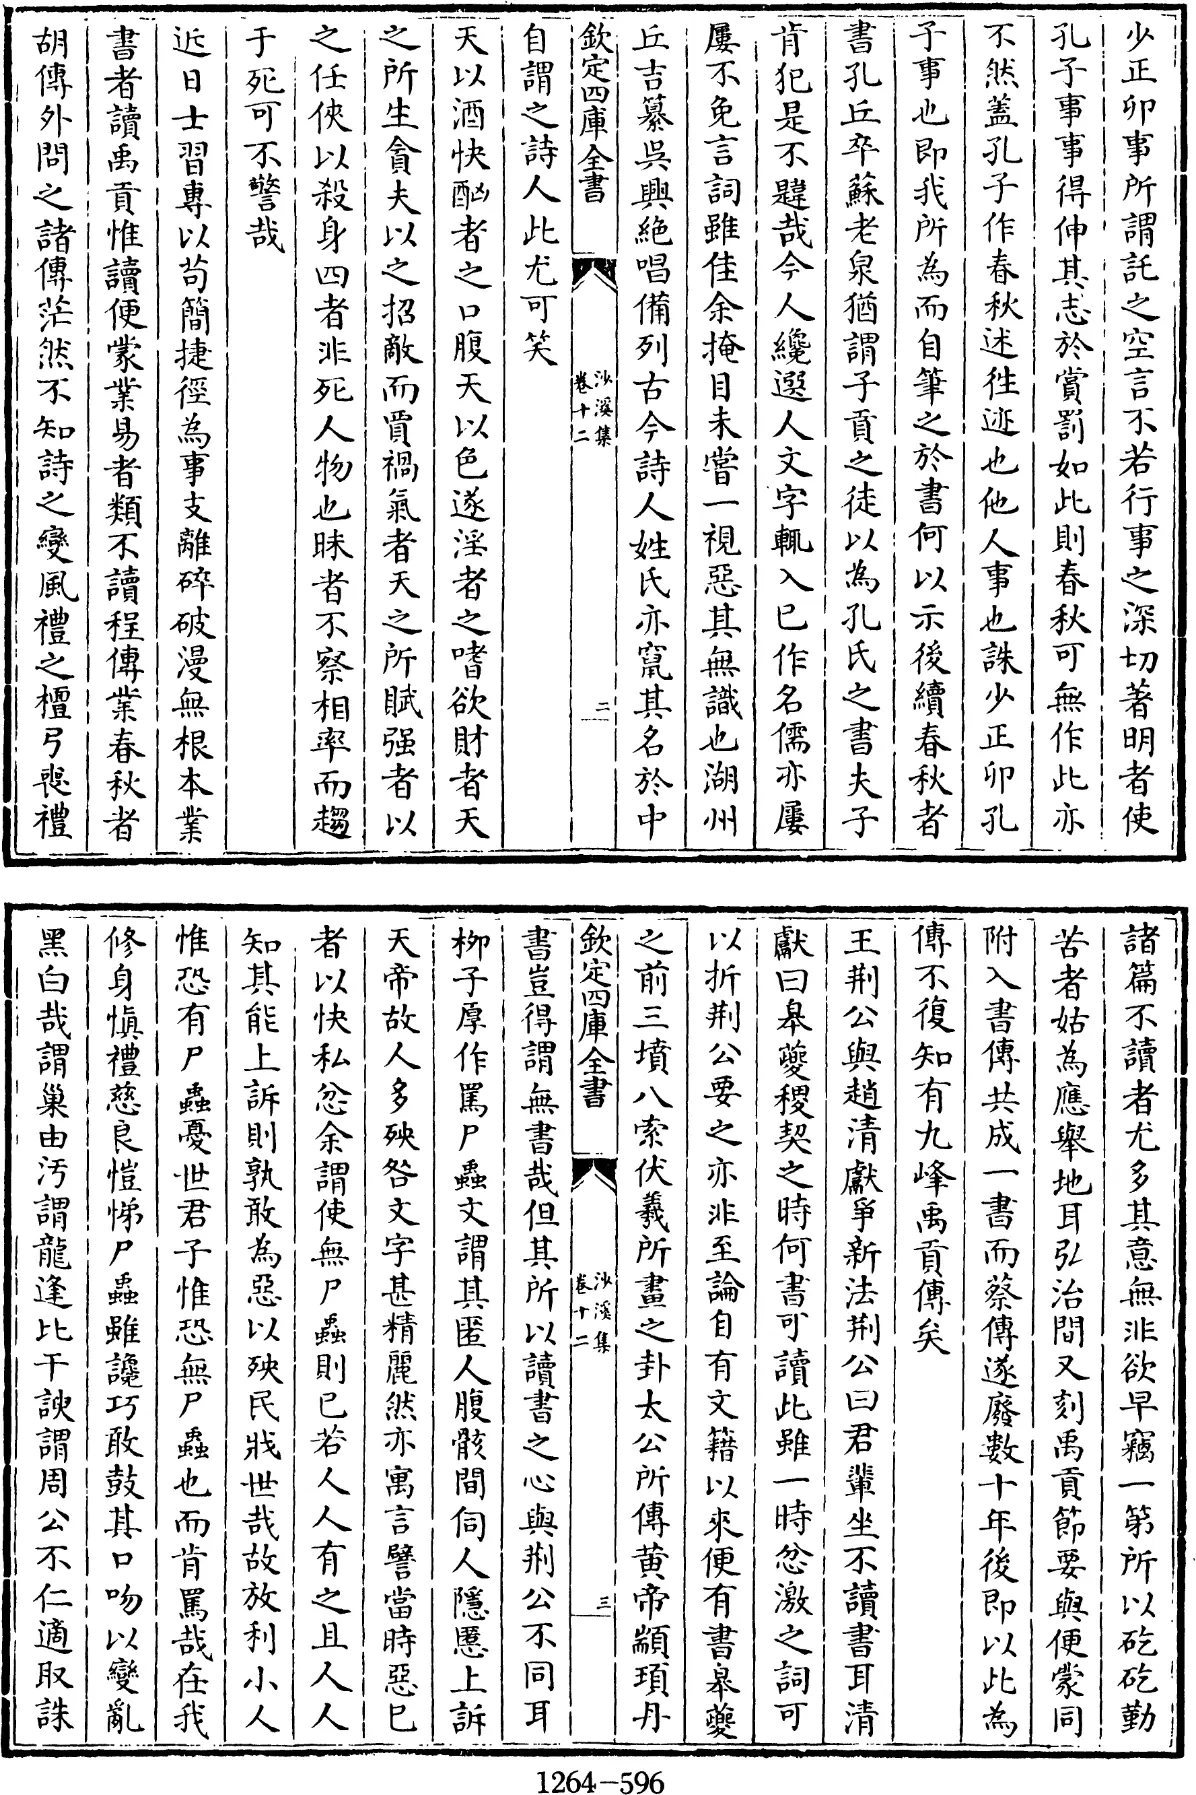 少正卯事所謂託之空言不若行事之深切著明者使
孔子事事得伸其志於賞罰如此則春秋可無作此亦
不然盖孔子作春秋述徃迹也他人事也誅少正卯孔
子事也即我所為而自筆之於書何以示後續春秋者
書孔丘卒蘇老泉猶謂子貢之徒以為孔氏之書夫子
肯犯是不韙哉今人纔選人文字輒入已作名儒亦屢
屢不免言詞雖佳余掩目未嘗一視惡其無識也湖州
丘吉纂吳興絶唱備列古今詩人姓氏亦竄其名於中
欽定四庫全書
沙溪集
卷十二
二
自謂之詩人此尤可笑
天以酒快酗者之口腹天以色遂淫者之嗜欲財者天
之所生貪夫以之招敵而賈禍氣者天之所賦强者以
之任俠以殺身四者非死人物也昧者不察相率而趨
于死可不警哉
近日士習專以苟簡捷徑為事支離碎破漫無根本業
書者讀禹貢惟讀便蒙業易者類不讀程傳業春秋者
胡傳外問之諸傳茫然不知詩之變風禮之檀弓喪禮
諸篇不讀者尤多其意無非欲早竊一第所以矻矻勤
苦者姑為應舉地耳弘治間又刻禹貢節要與便蒙同
附入書傳共成一書而蔡傳遂廢數十年後即以此為
傳不復知有九峰禹貢傳矣
王荆公與趙清獻爭新法荆公曰君輩坐不讀書耳清
獻曰皋夔稷契之時何書可讀此雖一時忿激之詞可
以折荆公要之亦非至論自有文籍以來便有書皋夔
之前三墳八索伏羲所畫之卦太公所傳黄帝顓頊丹
欽定四庫全書
沙溪集
卷十二
三
書豈得謂無書哉但其所以讀書之心與荆公不同耳
柳子厚作罵尸蟲文謂其匿人腹骸間伺人隱慝上訴
天帝故人多殃咎文字甚精麗然亦寓言譬當時惡已
者以快私忿余謂使無尸蟲則已若人人有之且人人
知其能上訴則孰敢為惡以殃民戕世哉故放利小人
惟恐有尸蟲憂世君子惟恐無尸蟲也而肯罵哉在我
修身愼禮慈良愷悌尸蟲雖讒巧敢鼓其口吻以變亂
黑白哉謂巢由汚謂龍逢比干諛謂周公不仁適取誅
1264-596